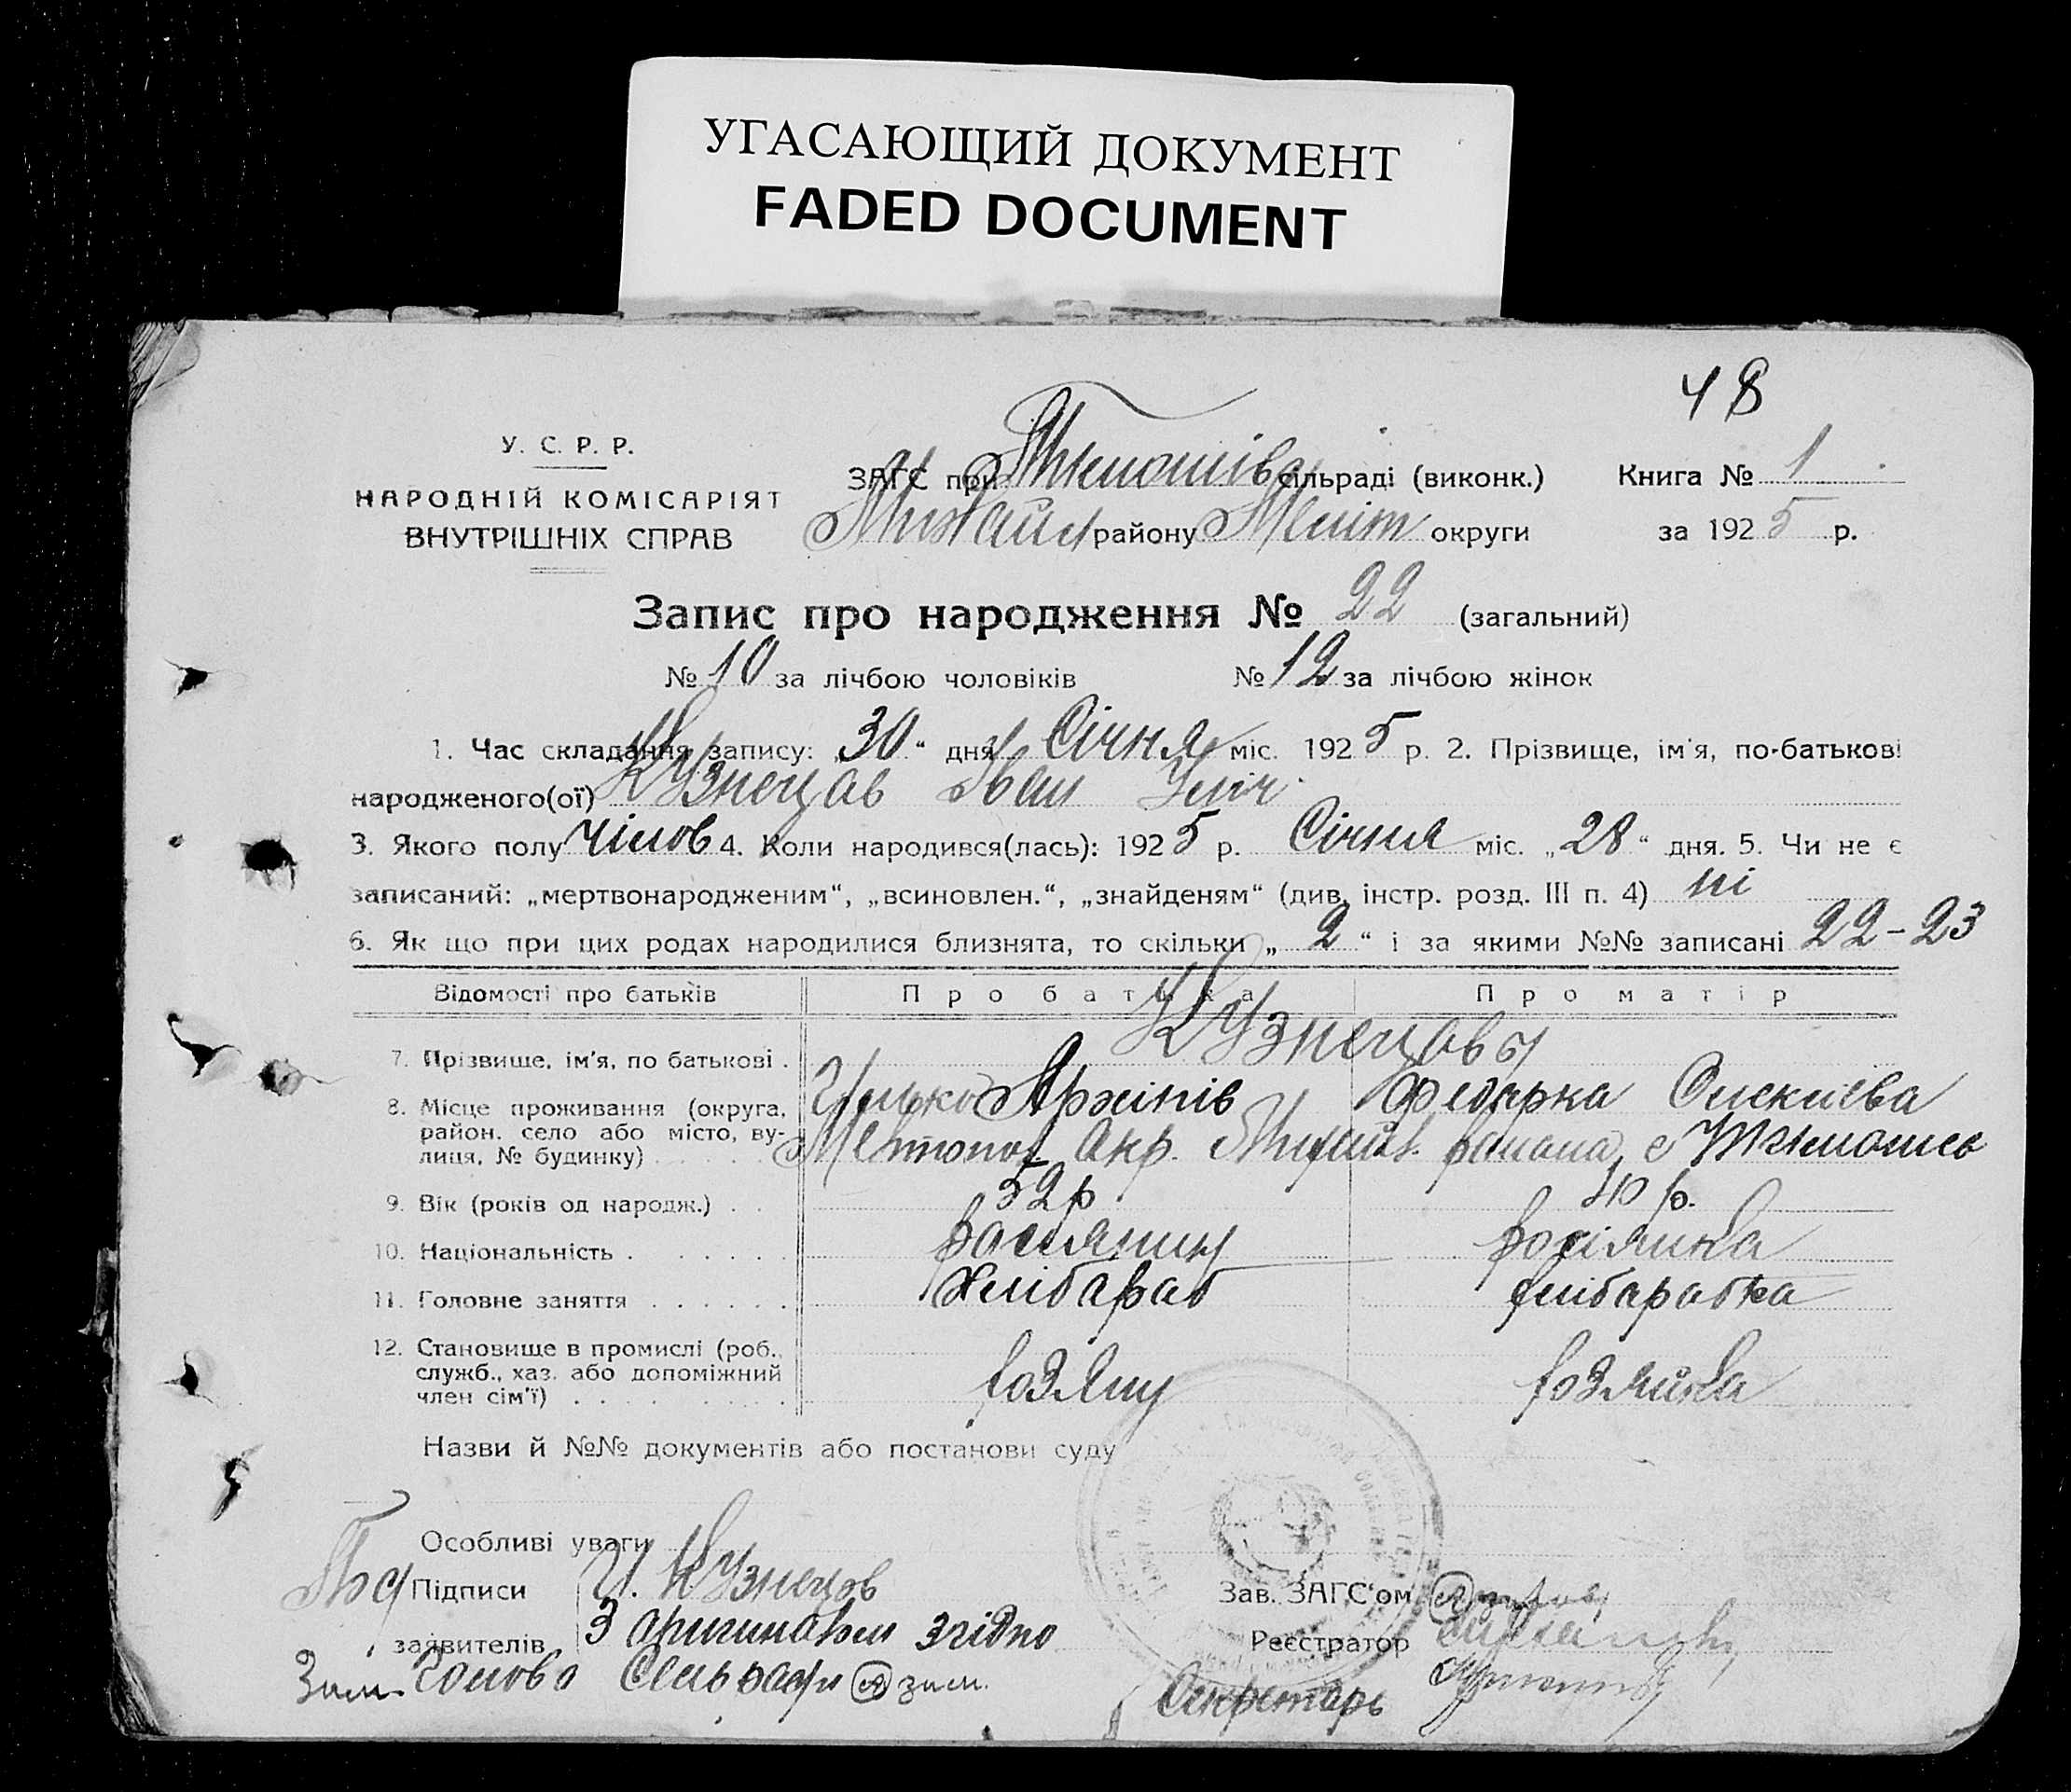 УГАСАЮЩИЙ ДОКУМЕНТ
FADED DOCUMENT
48
У. С. Р. Р.
НАРОДНІЙ КОМІСАРІЯТ
ВНУТРІШНІХ СПРАВ
ЗАГС при Тимошівс сільраді (виконк.)
Михайл району Меліт округи
Книга № 1
за 1925 р.
Запис про народження № 22 (загальний)
№ 10 за лічбою чоловіків № 12 за лічбою жінок
1. Час складання запису: „30“ дня Січня міс. 1925 р. 2. Прізвище, ім'я, по-батькові
народженого(ої) Кузнецов Іван Іліч
3. Якого полу чілов 4. Коли народився(лась): 1925 р. Січня міс. „28“ дня. 5. Чи не є
записаний: „мертвонародженим“, „всиновлен.“, „знайденям“ (див. інстр. розд. III п. 4) ні
6. Як що при цих родах народилися близнята, то скільки „2“ і за якими №№ записані 22-23
Відомості про батьків Про батька Про матір
Кузнецовы
7. Прізвище, ім'я, по батькові .
Ілько Архипів Федорка Олексієва
8. Місце проживання (округа,
район. село або місто, ву-
лиця, № будинку)
Мелітопол Окр. Михайл. району с Тимошів
9. Вік (років од народж.) . . 52 р 40 р.
10. Національність . росіянин росіянка
11. Головне заняття хлібараб хлібарабка
12. Становище в промислі (роб.,
служб., хаз. або допоміжний
член сім'ї)
хозяин хозяйка
Назви й №№ документів або постанови суду
Особливі уваги
Підписи И. Кузнецов
заявителів
З аригиналом згідно
Зав. ЗАГС'ом
Реєстратор
Зам. Голова Сельради
Секретарь